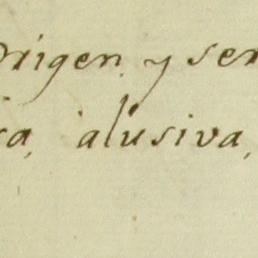 Origen y ser
ca, alusiva,